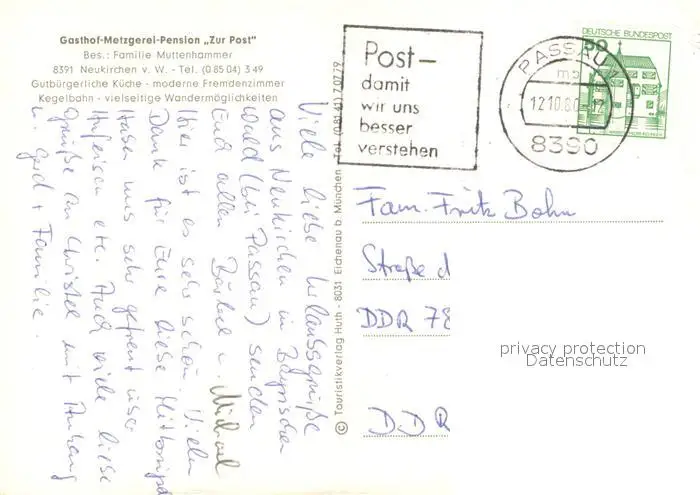 Gasthof-Metzgerei-Pension „Zur Post"
Bes.: Familie Muttenhammer
8391 Neukirchen v. W. - Tel. (0 85 04) 3 49
Gutbürgerliche Küche - moderne Fremdenzimmer
Kegelbahn - vielseitige Wandermöglichkeiten
Viele liebe Urlaubsgrüße
aus Neukirchen in Bayrischen
Wald (bei Passau) senden
Euch allen Bärbel u. Michael
Hier ist es sehr schön. Vielen
Dank für Eure liebe
Haben uns sehr gefreut
etc. Auch viele liebe
Grüße an Christel mit Anhang
u. Gerd + Familie.
© Touristikverlag Huth - 8031 Eichenau b. München Tel. (0 81 41) 7 07 79
Post-
damit
wir uns
besser
verstehen
PASSAU 1
mb
12.10.80-12
8390
DEUTSCHE BUNDESPOST
50
Fam. Fritz Bohn
Straße d
DDR 78
DDR
privacy protection
Datenschutz